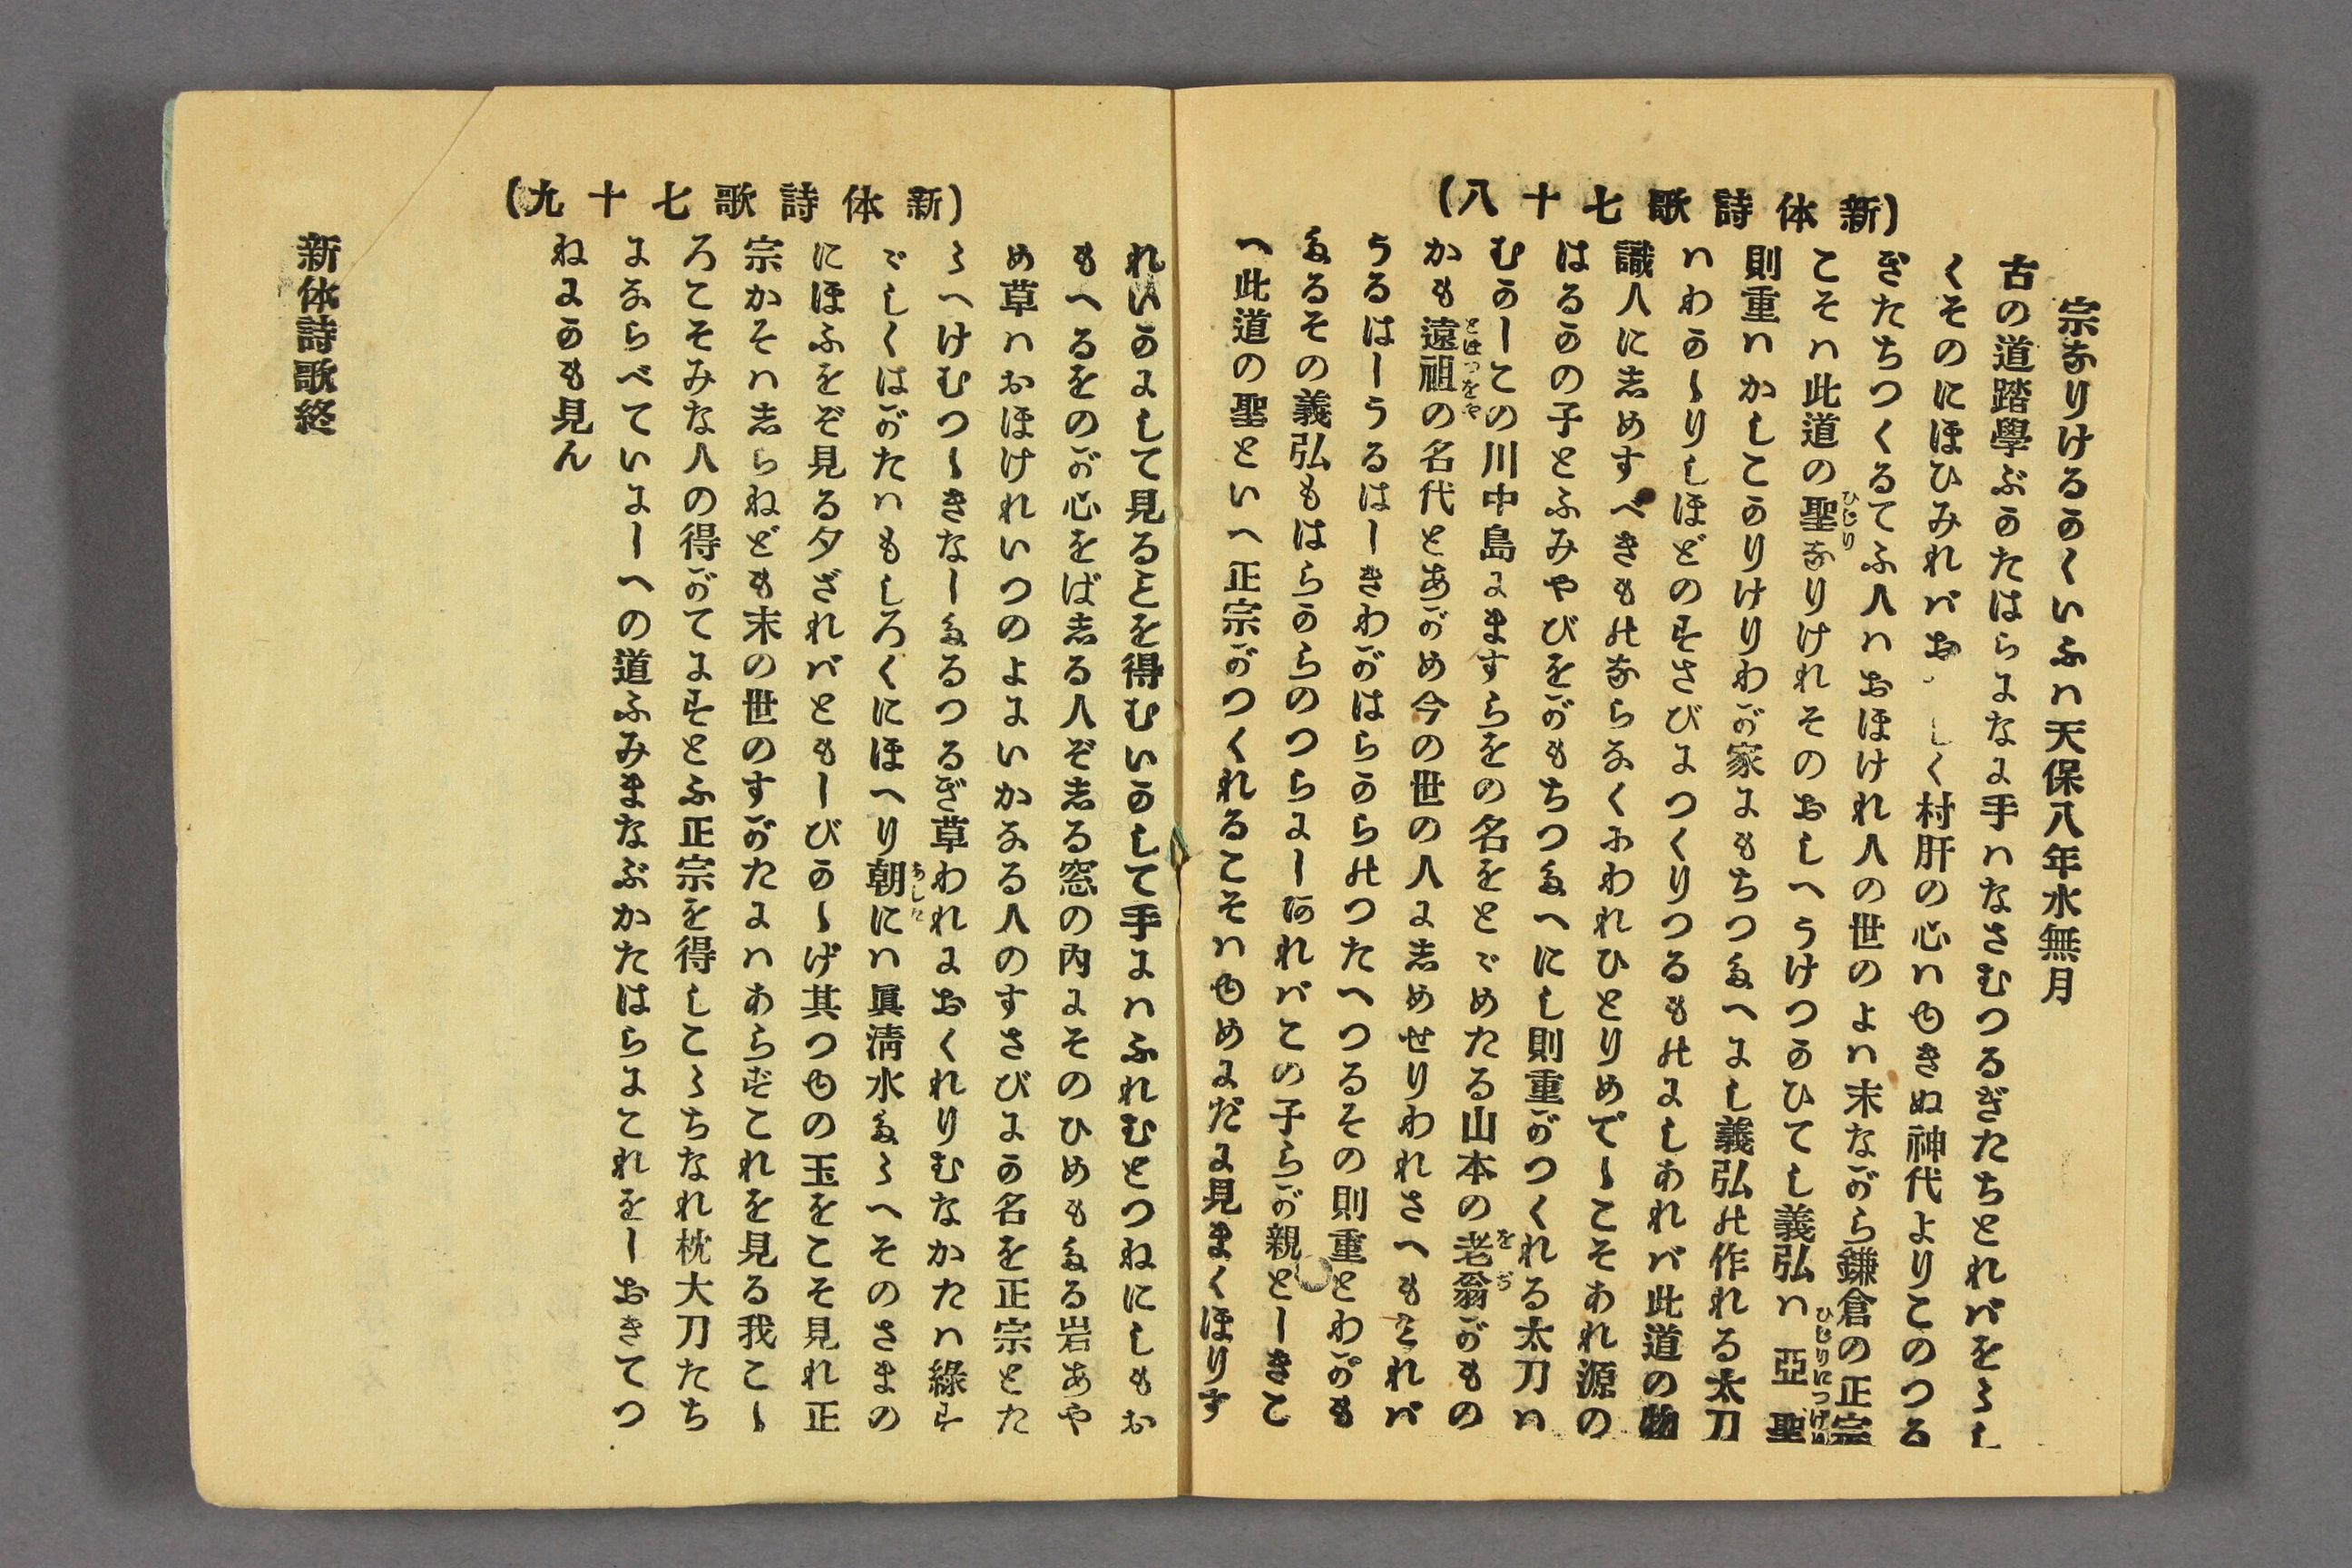 (新体詩歌七十八)
宗なりけるかくいふハ天保八年水無月
古の道踏學ぶかたはらになに手ハなさむつるぎたちとれバをゝし
くそのにほひみれバお しく村肝の心ハゆきぬ神代よりこのつる
ぎたちつくるてふ人ハおほけれ人の世のよハ末ながら鎌倉の正宗
こそハ此道の聖なりけれそのおしへうけつかひてし義弘ハ亞聖
ひじり
ひじりにつげる
則重ハかしこかりけりわが家にもちつたへにし義弘の作れる太刀
ハわかゝりしほどのすさびにつくりつるものにしあれバ此道の物
識人に志めすべきものならなくふわれひとりめでゝこそあれ源の
はるかの子とふみやびをがもちつたへにし則重がつくれる太刀ハ
むかしこの川中島にますらをの名をとゞめたる山本の老翁がもの
をぢ
かも遠祖の名代とあがめ今の世の人に志めせりわれさへもみれバ
とほつをや
うるはしうるはしきわがはらからのつたへつるその則重とわがも
たるその義弘もはらからのつらにしあれバこの子らが親としきこ
へ此道の聖といへ正宗がつくれるこそハゆめにだに見まくほりす
(新体詩歌七十九)
れいかにして見るとを得むいかして手にハふれむとつねにしもお
もへるをのが心をば志る人ぞ志る窓の内にそのひめもたる岩あや
め草ハおほけれいつのよにいかなる人のすさびにか名を正宗とた
ゝへけむつゝきなしたるつるぎ草われにおくれりむなかたハ緑す
ゞしくはがたハもしろくにほへり朝にハ眞清水たゝへそのさまの
あした
にほふをぞ見る夕ざれバともしびかゝげ其つゆの玉をこそ見れ正
宗かそハ志らねども末の世のすがたにハあらずこれを見る我こゝ
ろこそみな人の得がてにすとふ正宗を得しこゝちなれ枕大刀たち
にならべていにしへの道ふみまなぶかたはらにこれをしおきてつ
ねにかも見ん
新体詩歌終